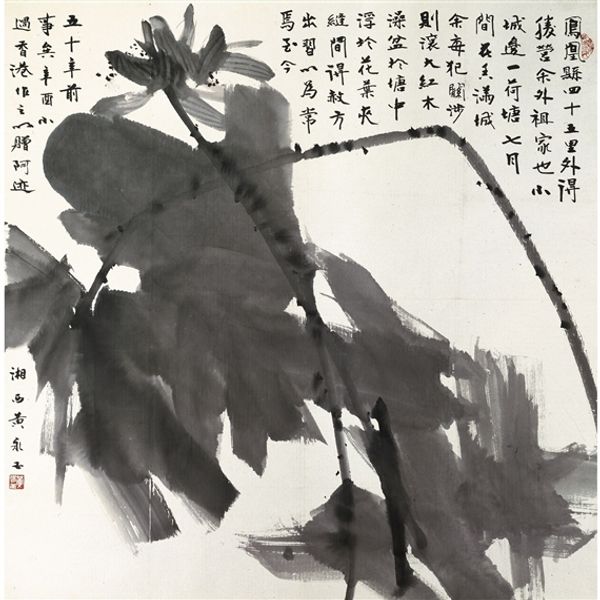 鳳凰縣四十五里外得
勝營余外祖家也小
城邊一荷塘七月
間花香滿城
余每犯關涉
則滾大紅木
澡盆於塘中
浮於花葉夾
縫間得赦方
出習以為常
焉至今
五十年前
事矣辛酉小
過香港作之以贈阿
湘西黃永玉